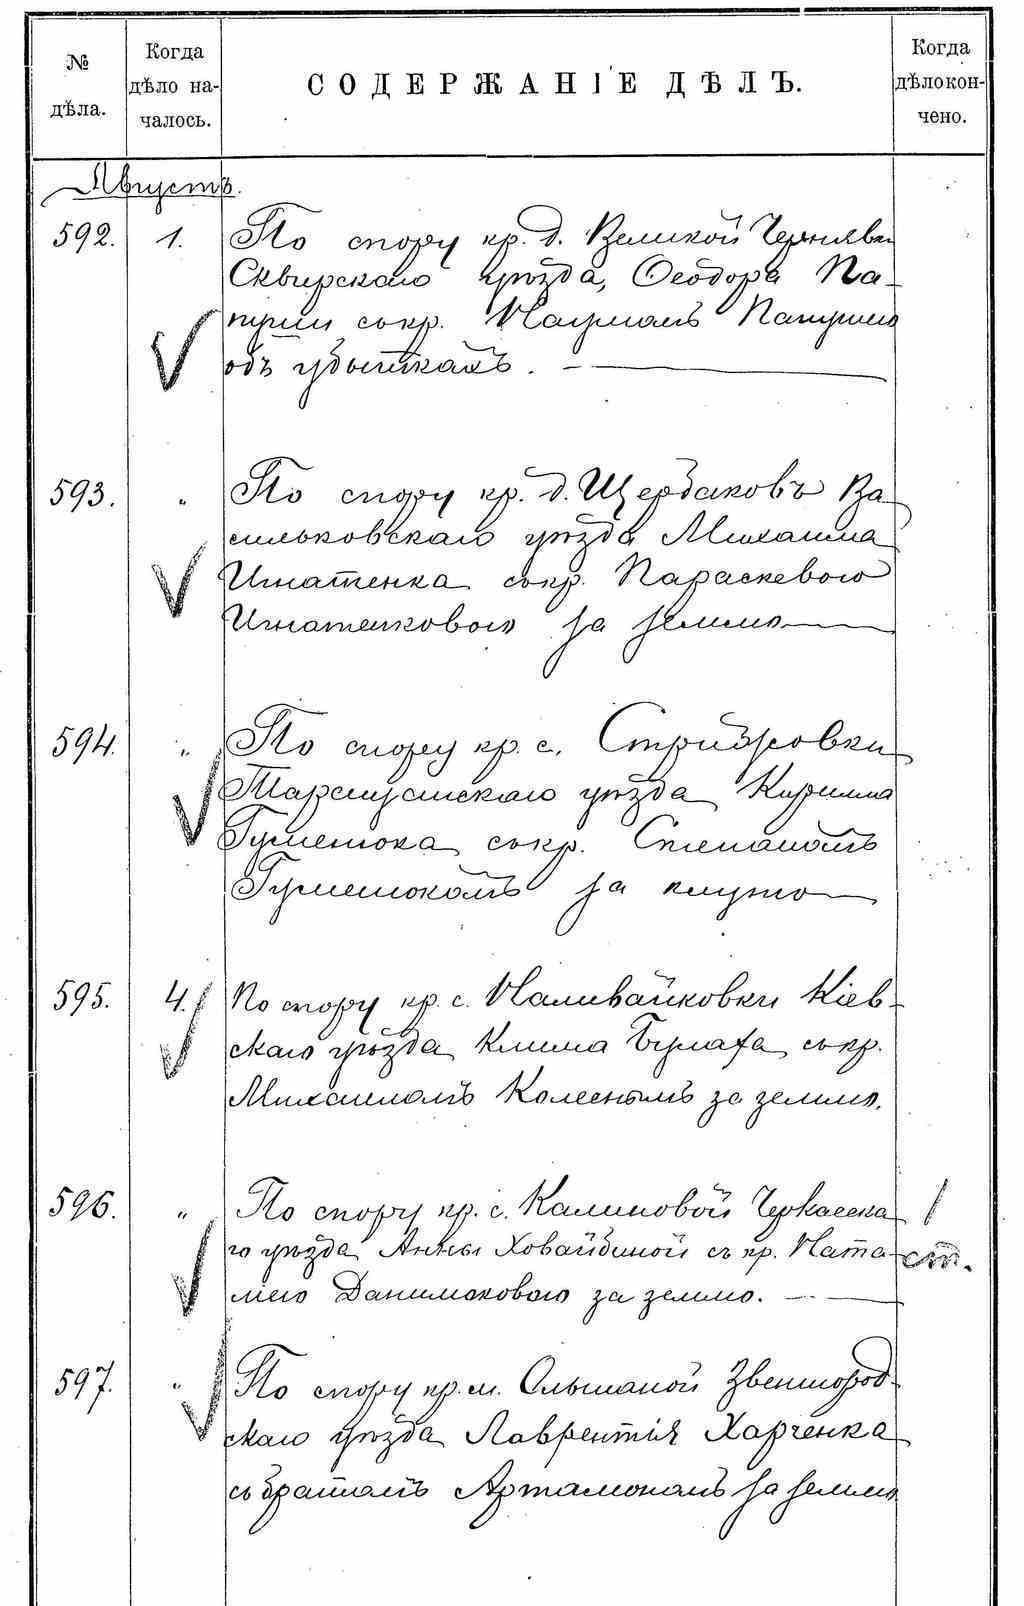 № дѣла.
Когда дѣло на-чалось.
СОДЕРЖАНІЕ ДѢЛЪ.
Когда дѣло кон-чено.
Августъ.
592. 1. По спору кр. д. Великой Чернявки
Сквирскаго уѣзда, Ѳеодора Па-
пуши съ кр. Наумомъ Папушею
объ убыткахъ. —
593. „ По спору кр. д. Щербаковъ Ва-
сильковскаго уѣзда Михаила
Игнатенка съ кр. Параскевою
Игнатенковою за землю —
594. „ По спору кр. с. Стрижовки
Таращанскаго уѣзда Кирилла
Гуменюка съ кр. Степаномъ
Гуменюкомъ за клуню —
595. 4. По спору кр. с. Наливайковки Кіев-
скаго уѣзда Клима Булаха съ кр.
Михаиломъ Колеснымъ за землю.
596. „ По спору кр. с. Калиновой Черкасска
го уѣзда Анны Ховайбиной съ кр. Ната-
ліею Данилюковою за землю. —
ст.
597. „ По спору кр. м. Ольшаной Звенигород-
скаго уѣзда Лаврентія Харченка
съ братомъ Артамономъ за землю